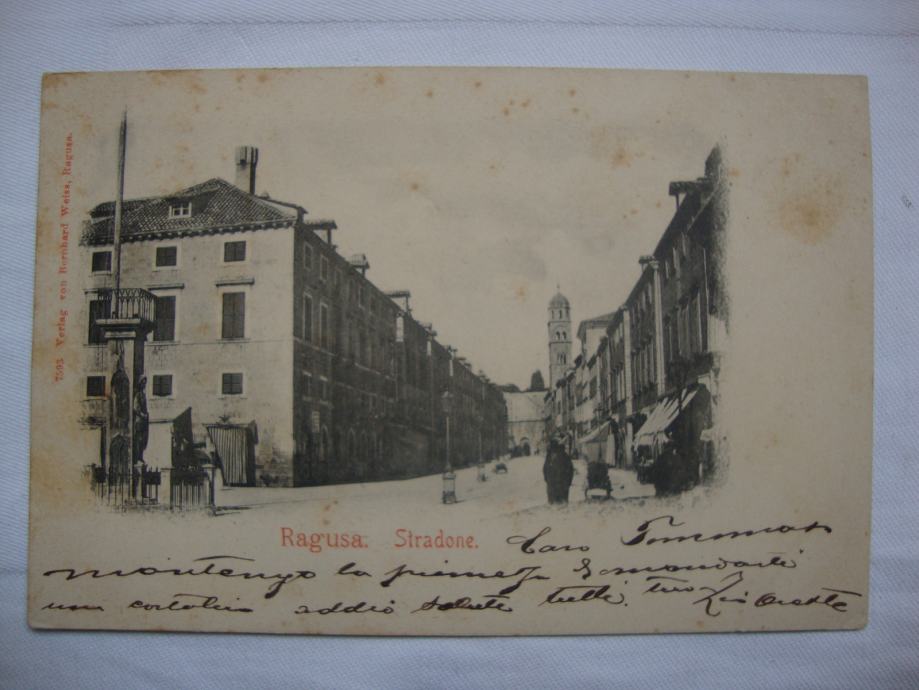 7593 Verlag von Bernhard Weiss, Ragusa.
Ragusa. Stradone.
Caro Tommaso
mantengo la promessa di mandarti
una cartolina addio saluta tutti. tuo Zio Oreste